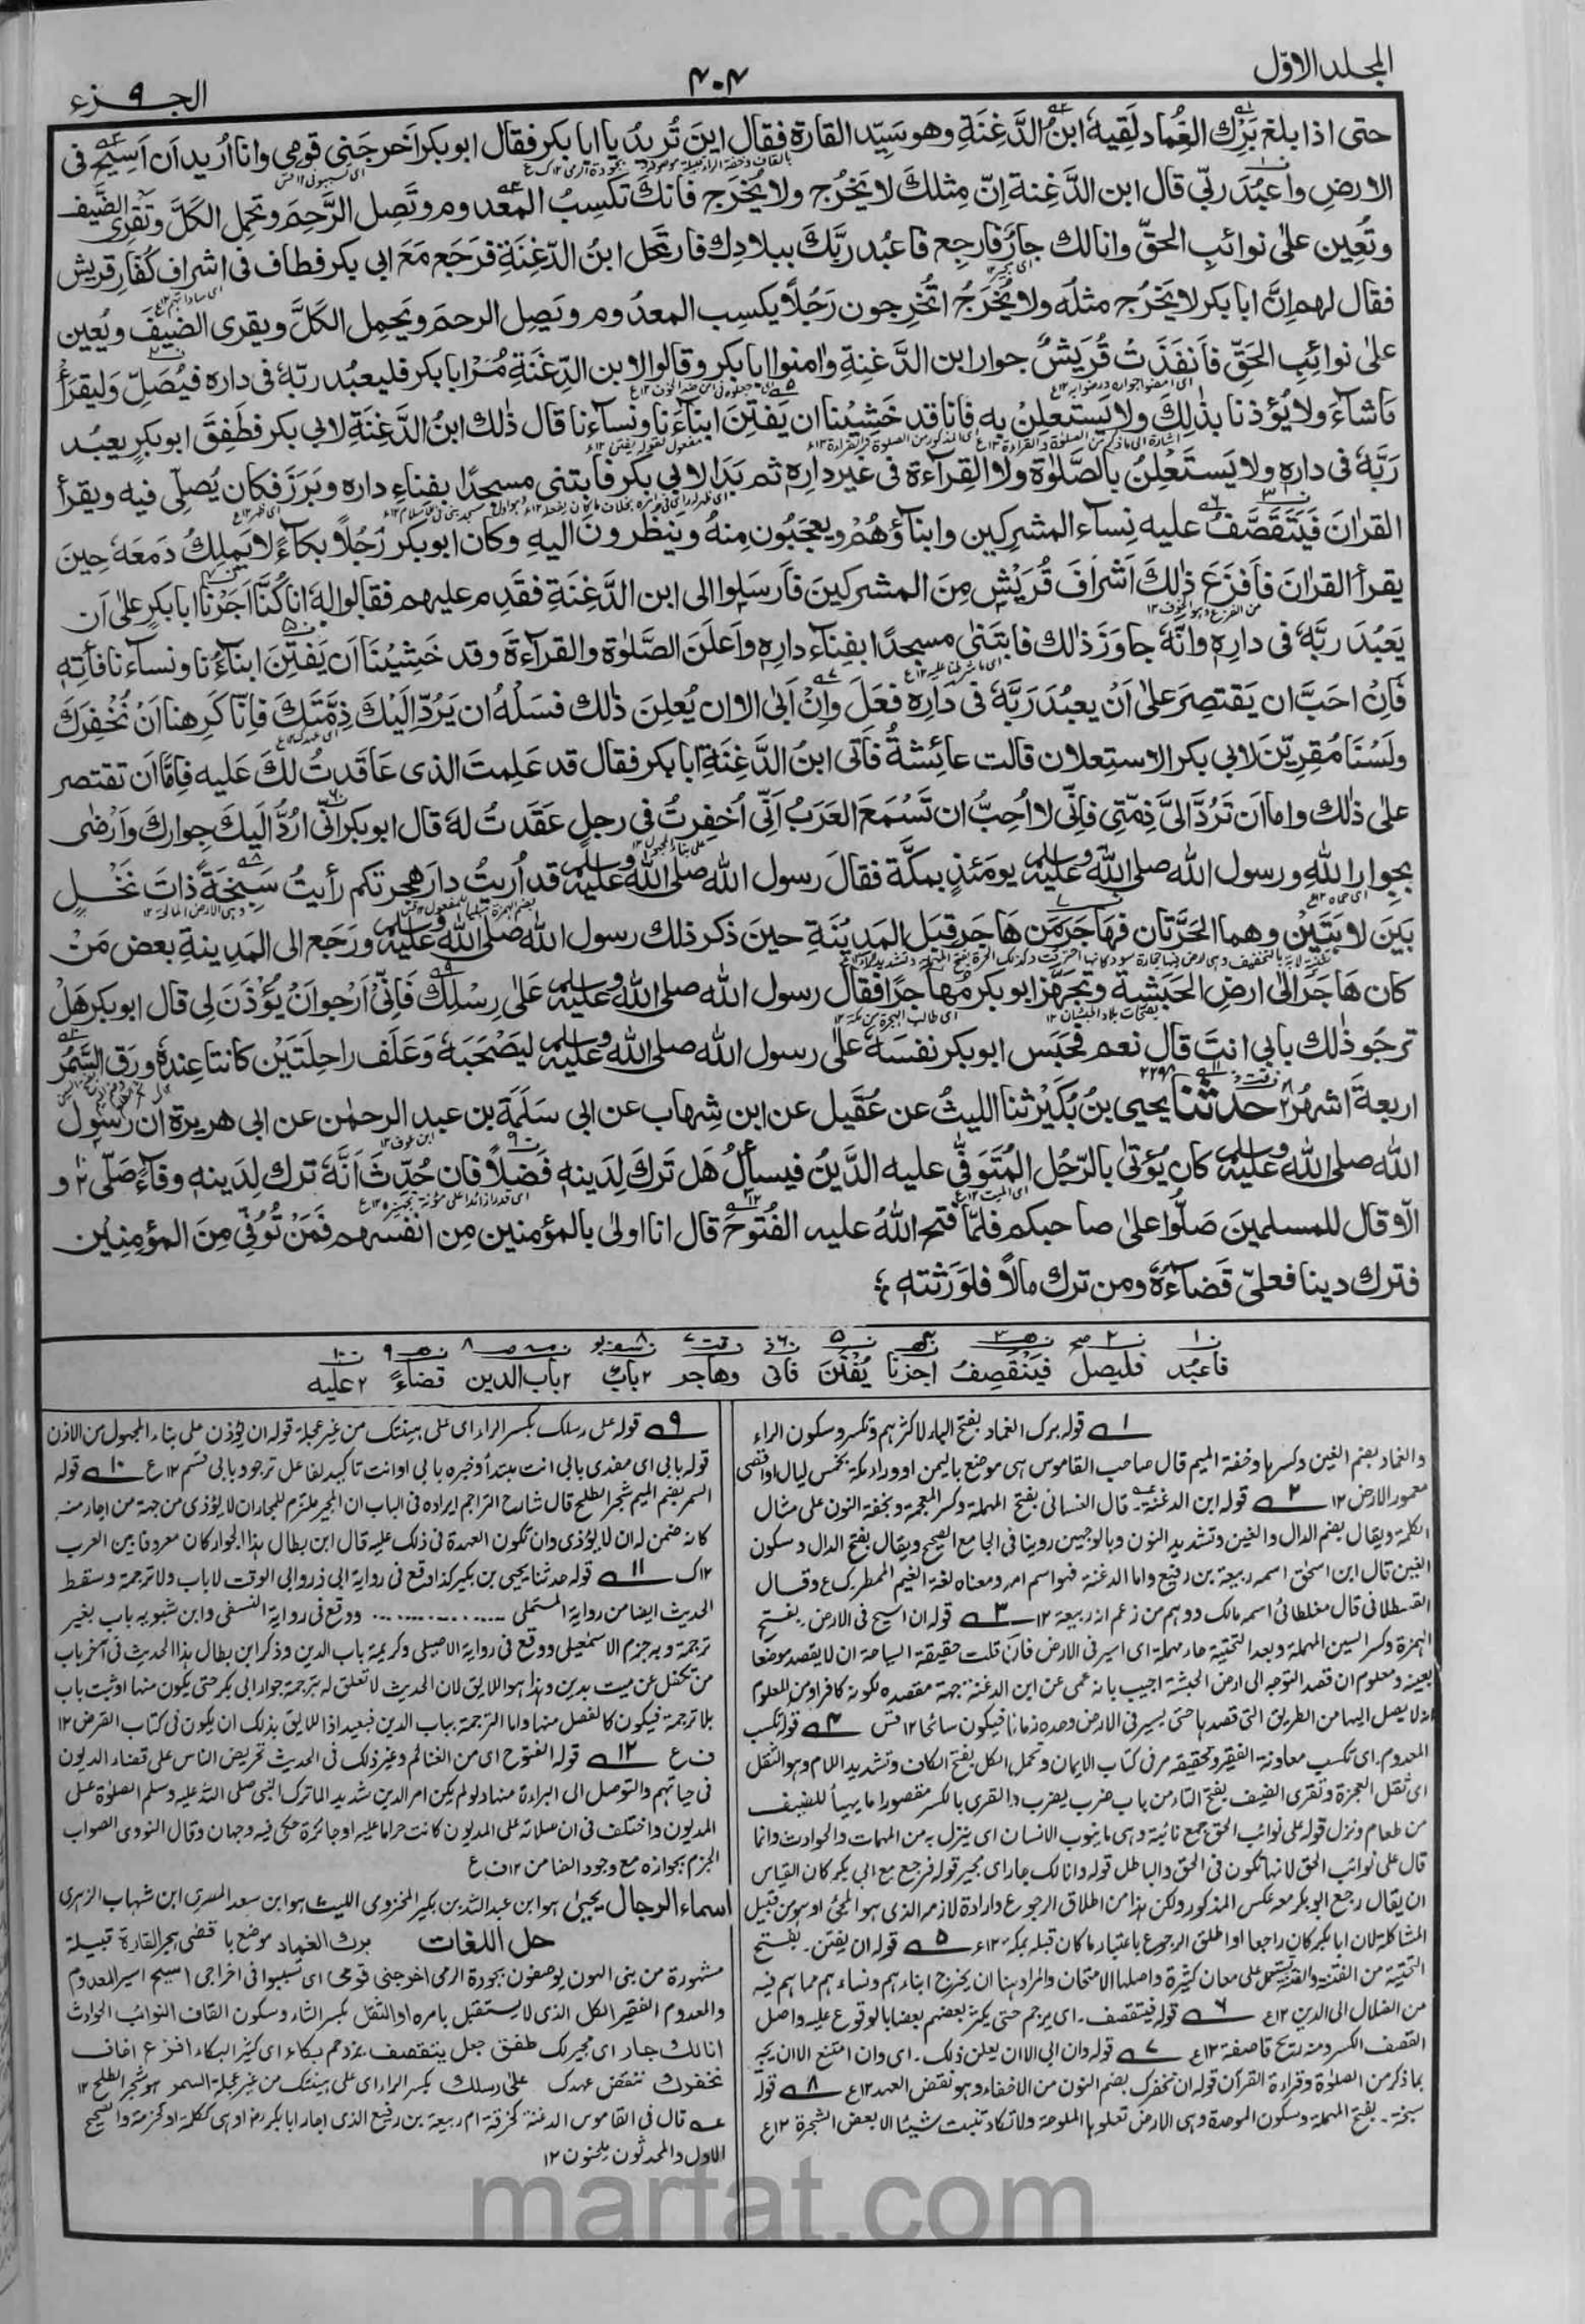 المجلد الاوّل
۴۰۴
الجزء ۹
حتى اذا بلغ بَرْك الغُماد لَقِيهٗ ابنُ الدَّغِنَةِ وهو سَيِّد القارة فقال اينَ تُريدُ يا ابا بكر فقال ابو بكر اَخرجَني قومي وانا اُريد اَن اَسِيحَ في
الارضِ واَعبُدَ ربّي قال ابن الدَّغِنة اِنّ مِثلكَ لا يَخرُج ولا يُخرَج فانكَ تكسِبُ المعدوم وتَصِل الرَّحِمَ وتحمِل الكَلَّ وتَقرِي الضَّيف
وتُعِين علىٰ نوائبِ الحقّ وانا لك جارٌ فارجِع فاعبُد ربَّكَ ببلادِك فارتحل ابنُ الدَّغِنَةِ فرَجَع مَعَ ابي بكر فطاف في اشرافِ كُفّارِ قريش
فقال لهم اِنَّ ابا بكر لا يَخرُج مثلُه ولا يُخرَجُ اَتُخرِجون رَجُلاً يكسِب المعدُوم ويَصِل الرحمَ ويَحمِل الكَلَّ ويقرى الضيفَ ويُعِين
علىٰ نوائِبِ الحَقِّ فاَنفَذَتْ قُرَيشٌ جوار ابن الدَّغِنةِ واٰمنوا ابا بكر وقالوا لابن الدَّغِنَةِ مُرْ ابا بكر فليعبُد ربّهٗ في داره فيُصَلِّ وَليقرَأ
مَاشآءَ ولا يُؤذنا بذٰلِكَ ولا يَستَعلِنْ به فانا قد خَشِيْنا ان يَفتِنَ ابناءَنا ونِساءَنا قال ذٰلك ابنُ الدَّغِنَةِ لابي بكر فطَفِقَ ابو بكرٍ يعبُد
رَبَّهٗ في دارِهٖ ولا يَستَعْلِنُ بالصَّلوٰة ولا القِرآءة في غير دارِهٖ ثم بَدَا لابي بكر فابتنى مسجدًا بفِناءِ داره وبَرَزَ فكان يُصلّي فيه ويقرأ
القراٰن فَيَتَقَصَّفُ عليه نِسآء المشركين وابناؤهُم ويعجَبُون مِنهُ وينظُرونَ اليهِ وكان ابو بكر رَجُلاً بكّاءً لا يَملِكُ دَمعَهٗ حِينَ
يقرأ القراٰنَ فاَفزَعَ ذٰلِكَ اَشرافَ قُرَيْشٍ مِنَ المشركينَ فاَرسَلوا الى ابن الدَّغِنَةِ فقَدِم عليهم فقالوا لهٗ انا كُنَّا اَجَرْنَا ابا بَكرٍ علىٰ اَن
يَعبُدَ ربَّهٗ في دارِهٖ وانّهٗ جاوَزَ ذٰلك فابتَنىٰ مسجدًا بفِناءِ دارِهٖ واَعلَنَ الصَّلوٰةَ والقِراءَةَ وقد خَشِيْنَا اَن يَفتِنَ ابناءَنا ونساءَنا فأتِهٖ
فاِنْ احَبَّ ان يَقتصِرَ علىٰ اَنْ يعبُدَ رَبَّهٗ في دَارِهٖ فعَلَ وَاِنْ اَبىٰ الا ان يُعلِنَ ذٰلك فسَلْهُ ان يَرُدَّ اِلَيْكَ ذِمَّتَكَ فاِنّا كَرِهنا اَنْ نُخْفِرَكَ
ولَسْنَا مُقِرِّيْنَ لابي بكر الاستِعلان قالت عائِشةُ فاَتى ابنُ الدَّغِنَةِ ابا بكر فقال قد عَلِمتَ الذى عَاقَدتُ لكَ عَليه فاِمّا اَن تقتصر
علىٰ ذٰلك واما اَن تَرُدَّ اِلىَّ ذِمّتي فاِنّي لا اُحِبُّ ان تَسْمَعَ العَرَبُ اَنِّي اُخفِرتُ في رجلٍ عَقَدتُ لهٗ قال ابو بكر انّي اَرُدُّ اِلَيكَ جِوارَكَ واَرْضٰى
بجِوارِ اللّٰهِ ورسول الله صلى الله عليه وسلم يومَئذٍ بمكّة فقالَ رسول الله صلى الله عليه وسلم قد اُرِيتُ دارَ هجرتِكم رأيتُ سَبخةً ذاتَ نَخْلٍ
بَيْنَ لابَتَيْنِ وهما الحَرَّتانِ فهَاجَرَ مَن هَاجَرَ قِبَلَ المَدِيْنَةِ حينَ ذكر ذلك رسول الله صلى الله عليه وسلم ورَجَع الى المَدِينةِ بعض مَنْ
كان هَاجَرَ الىٰ ارضِ الحَبَشةِ وتَجَهَّزَ ابو بكر مُهاجِرًا فقال رسول الله صلى الله عليه وسلم عَلىٰ رِسْلِكَ فَاِنّي اَرجو اَنْ يُؤذَنَ لي قال ابو بكر هَلْ
ترجُو ذٰلك بابي انتَ قال نعم فحَبَس ابو بكر نفسَهٗ علىٰ رسول الله صلى الله عليه وسلم لِيَصْحَبَهٗ وَعَلَفَ راحِلَتَيْن كانتا عندهٗ ورَقَ السَّمُرِ
اربعةَ اَشهُرٍ حدثنا يحيى بنُ بُكَيْر ثنا الليثُ عن عُقَيل عن ابن شِهاب عن ابي سَلَمَة بن عبد الرحمٰن عن ابي هريرة ان رسول
الله صلى الله عليه وسلم كان يُؤتىٰ بالرّجُلِ المُتَوفّٰى عليه الدَّينُ فيسألُ هَل تَرَكَ لدَينهٖ فَضلاً فان حُدِّثَ اَنَّهٗ ترك لِدَينهٖ وفاءً صَلّى و
الاّ قال للمسلمينَ صَلّوا علىٰ صاحبكم فلمّا فتح اللهُ عليه الفُتوحَ قال انا اولىٰ بالمؤمنين مِن انفسهم فَمَنْ تُوُفِّىَ مِنَ المؤمِنِيْن
فترك دينا فعلىّ قَضاءُهٗ ومن ترك مالاً فلوَرَثتهٖ
فاعبُد فليصل فيَنْقَصِفُ اجرنا يُفْتَنَ فانى وهاجر ٢ باب ٢ باب الدين قضاءً ٢ عليه
١ قوله برك الغماد بفتح الباء لاكثرهم وتكسر وسكون الراء
والغماد بضم الغين وكسرها وخفة الميم قال صاحب القاموس هى موضع باليمن او وراء مكة بخمس ليال او اقصى
معمور الارض ١٢ ٢ قوله ابن الدغنة قال الغسانى بفتح المهملة وكسر المعجمة وبخفة النون على مثال
الكلمة ويقال بضم الدال والغين وتشديد النون وبالوجهين روينا فى الجامع الصحيح ويقال بفتح الدال وسكون
الغين قال ابن اسحٰق اسمه ربيعة بن رفيع واما الدغنة فهو اسم امه ومعناه لغة الغيم الممطر ك ع وقال
القسطلانى قال مغلطائى اسمه مالك ووهم من زعم انه ربيعة ١٢ ٣ قوله ان اسيح فى الارض بفتح
الهمزة وكسر السين المهملة وبعد التحتية حاء مهملة اى اسير فى الارض فان قلت حقيقة السياحة ان لا يقصد موضعا
بعينه ومعلوم انه قصد التوجه الى ارض الحبشة اجيب بانه عمى عن ابن الدغنة جهة مقصده لكونه كافرا ومن المعلوم
انه لا يصل اليها من الطريق التى قصدها حتى يسير فى الارض وحده زمانا فيكون سائحا ١٢ قس ٤ قوله تكسب
المعدوم اى تكسب معاونة الفقير وتحقيقه مر فى كتاب الايمان وتحمل الكل بفتح الكاف وتشديد اللام وهو الثقل
اى ثقل العجزة وتقرى الضيف بفتح التاء من باب ضرب يضرب والقرى بالكسر مقصورا ما يهيأ للضيف
من طعام ونزل قوله على نوائب الحق جمع نائبة وهى ما ينوب الانسان اى ينزل به من المهمات والحوادث وانما
قال على نوائب الحق لانها تكون فى الحق والباطل قوله وانا لك جار اى مجير قوله فرجع مع ابى بكر كان القياس
ان يقال رجع ابو بكر معه عكس المذكور ولكن هذا من اطلاق الرجوع وارادة لازمه الذى هو المجئ او هو من قبيل
المشاكلة لان ابا بكر كان راجعا او اطلق الرجوع باعتبار ما كان قبله بمكة ١٢ع ٥ قوله ان يفتن بفتح
التحتية من الفتنة والفتنة يستعمل على معان كثيرة واصلها الامتحان والمراد هنا ان يخرج ابناءهم ونساءهم مما هم فيه
من الضلال الى الدين ١٢ع ٦ قوله فيتقصف اى يزدحم حتى يكسر بعضهم بعضا بالوقوع عليه واصل
القصف الكسر ومنه ريح قاصفة ١٢ع ٧ قوله وان ابى الا ان يعلن ذلك اى وان امتنع الا ان يجهر
بما ذكر من الصلوٰة وقراءة القرآن قوله ان نخفرك بضم النون من الاخفاء وهو نقض العهد ١٢ع ٨ قوله
سبخة بفتح المهملة وسكون الموحدة وهى الارض تعلوها الملوحة ولا تكاد تنبت شيئا الا بعض الشجرة ١٢ع
٩ قوله على رسلك بكسر الراء اى على هينتك من غير عجلة قوله ان يؤذن على بناء المجهول من الاذن
قوله بابى اى مفدى بابى انت مبتدأ وخبره بابى او انت تاكيد لفاعل ترجو وبابى قسم ١٢ع ١٠ قوله
السمر بضم الميم شجر الطلح قال شارح التراجم ايراده فى الباب ان المجير ملتزم للمجار ان لا يؤذى من جهة من اجار منه
كانه ضمن له ان لا يؤذى وان تكون العهدة فى ذلك عليه قال ابن بطال هذا الجوار كان معروفا بين العرب
١٢ك ١١ قوله حدثنا يحيى بن بكير كذا وقع فى رواية ابى ذر وابى الوقت لا باب ولا ترجمة وسقط
الحديث ايضا من رواية المستملى ووقع فى رواية النسفى وابن شبويه باب بغير
ترجمة وبه جزم الاسمٰعيلى ووقع فى رواية الاصيلى وكريمة باب الدين وذكر ابن بطال هذا الحديث فى آخر باب
من تكفل عن ميت بدين وهذا هو اللايق لان الحديث لا تعلق له بترجمة جوار ابى بكر حتى يكون منها او ثبت باب
بلا ترجمة فيكون كالفصل منها واما الترجمة بباب الدين فبعيد اذ اللايق بذلك ان يكون فى كتاب القرض ١٢
ف ع ١٢ قوله الفتوح اى من الغنائم وغير ذلك فى الحديث تحريض الناس على قضاء الديون
فى حياتهم والتوصل الى البراءة منها ولو لم يكن امر الدين شديدا لما ترك النبى صلى الله عليه وسلم الصلوٰة على
المديون واختلف فى ان صلاته على المديون كانت حراما عليه او جائزة حكى فيه وجهان وقال النووى الصواب
الجزم بجوازه مع وجود الضامن ١٢ ف ع
اسماء الرجال يحيىٰ هو ابن عبد الله بن بكير المخزومى الليث هو ابن سعد المصرى ابن شهاب الزهرى
حل اللغات برك الغماد موضع باقصى هجر القارة قبيلة
مشهورة من بنى الهون يوصفون بجودة الرمى اخرجنى قومى اى تسببوا فى اخراجى اسيح اسير المعدوم
والمعدوم الفقير الكل الذى لا يستقبل بامره او الثقل بكسر الثاء وسكون القاف النوائب الحوادث
انا لك جار اى مجير لك طفق جعل يتقصف يزدحم بكاء اى كثير البكاء افزع اخاف
نخفرك ننقض عهدك على رسلك بكسر الراء اى على هينتك من غير عجلة السمر هو شجر الطلح ١٢
عه قال فى القاموس الدغنة كخرقة ام ربيعة بن رفيع الذى اجار ابا بكر رض او هى ككلمة او كحزمة والصحيح
الاول والمحدثون يلحنون ١٢
marfat.com